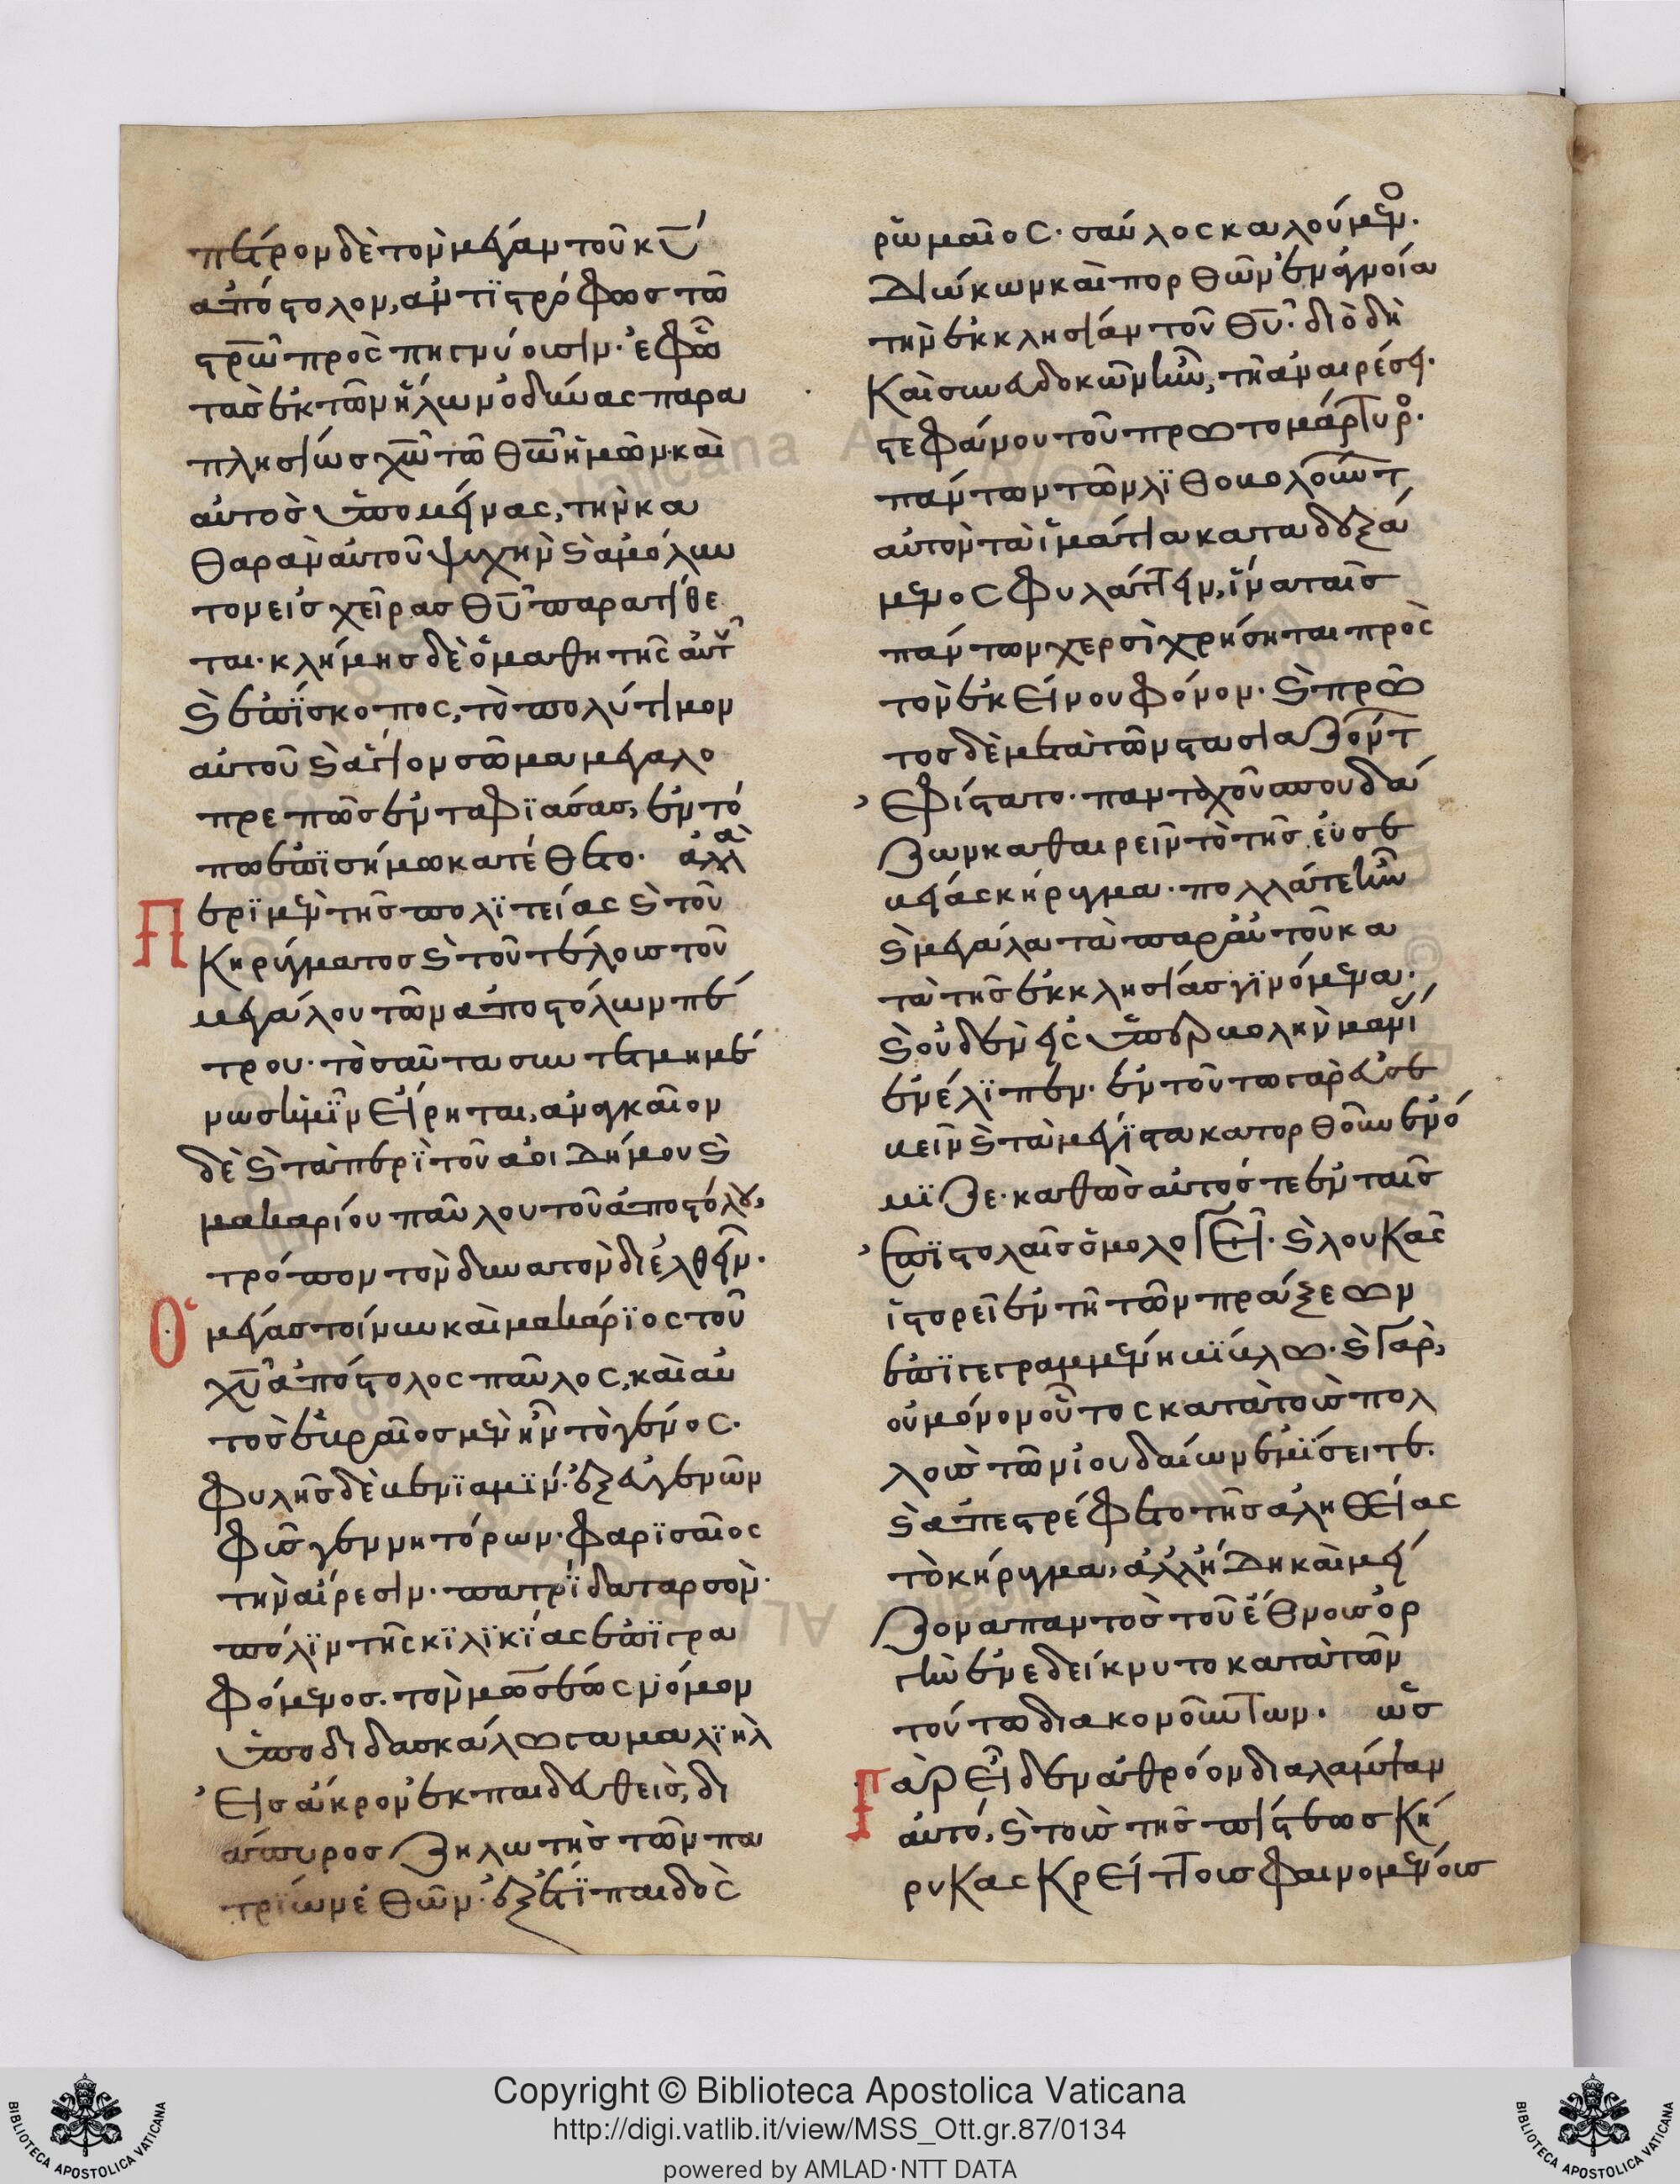 πέτρον δὲ τὸν μέγαν τοῦ κυ
ἀπόστολον, ἀντιστρόφως τῶ
στρω προσπήγνυουσιν· ἐφ ὧ
τὰς ἐκ τῶν ἥλων ὀδύνας παρα
πλησίως χω τῶ θω ἡμῶν καὶ
αὐτὸς ὑπομείνας, τὴν κα
θαρὰν αὐτοῦ ψυχὴν καὶ ἀμόλυν
τον εἰς χεῖρας θυ παρατίθε
ται· κλήμης δὲ ὁ μαθητὴς αὐτοῦ
καὶ ἐπίσκοπος, τὸ πολύτιμον
αὐτοῦ καὶ ἅγιον σῶμα μεγαλο
πρεπῶς ἐνταφιάσας, ἐν τό
πω ἐπισήμω κατέθετο· ἀλλὰ
Περὶ μὲν τῆς πολιτείας καὶ τοῦ
κηρύγματος καὶ τοῦ τέλους τοῦ
μεγάλου τῶν ἀποστόλων πέ
τρου· τοσαῦτα συντετμημέ
νως ἡμῖν εἴρηται, ἀναγκαῖον
δὲ καὶ τὰ περὶ τοῦ ἀοιδήμου καὶ
μακαρίου παύλου τοῦ ἀποστόλου,
τρόπον τὸν δυνατὸν διελθεῖν·
Ὁ μέγας τοίνυν καὶ μακάριος τοῦ
χυ ἀπόστολος παῦλος, καὶ αὐ
τὸς ἑβραῖος μὲν ἦν τὸ γένος·
φυλῆς δὲ βενιαμίν· ἐξ εὐγενῶν
φὺς γεννητόρων· φαρισαῖος
τὴν αἵρεσιν· πατρίδα ταρσὸν
πόλιν τῆς κιλικίας ἐπιγρα
φόμενος· τὸν μωσέως νόμον
ὑπὸ διδασκάλω γαμαλιὴλ
εἰς ἄκρον ἐκπαιδευθεὶς, δι
άπυρος ζηλωτὴς τῶν πα
τρίων ἐθῶν· ἐξέτι παιδὸς
ῥωμαῖος· σαύλος καλούμενος·
διώκων καὶ πορθῶν ἐν ἀγνοία
τὴν ἐκκλησίαν τοῦ θυ· διὸ δὴ
καὶ συνευδοκῶν ἦν, τῆ ἀναιρέσει
στεφάνου τοῦ πρωτομάρτυρος·
πάντων τῶν λιθοβολούντων
αὐτὸν τὰ ἱμάτια καταδεξά
μενος φυλάττειν, ἵνα ταῖς
πάντων χερσὶ χρήσηται πρὸς
τὸν ἐκείνου φόνον· καὶ πρῶ
τος δὲ μετὰ τῶν στασιαζόντων
ἐφίστατο· πανταχοῦ σπουδά
ζων καθαιρεῖν τὸ τῆς εὐσε
βείας κήρυγμα· πολλά τε ἦν
καὶ μεγάλα τὰ παρ αὐτοῦ κα
τὰ τῆς ἐκκλησίας γινόμενα·
καὶ οὐδὲν εἰς ὑπερβολὴν μανί
ἐνέλιπεν· ἐν τούτω γὰρ εὐσε
βεῖν καὶ τὰ μέγιστα κατορθοῦν ἐνό
μιζε· καθὼς αὐτός τε ἐν ταῖς
ἐπιστολαῖς ὁμολογεῖ· καὶ λουκᾶς
ἱστορεῖ ἐν τῆ τῶν πράξεων
ἐπιγεγραμμένη βίβλω· καὶ γὰρ,
οὐ μόνον οὗτος κατὰ τοὺς πολ
λοὺς τῶν ἰουδαίων ἐμίσει τε·
καὶ ἀπεστρέφετο τῆς ἀληθείας
τὸ κήρυγμα, ἀλλ ἤδη καὶ μεί
ζονα παντὸς τοῦ ἔθνους ὀρ
γὴν ἐνεδείκνυτο κατὰ τῶν
τούτω διακονούντων· ὡς
Γὰρ εἶδεν ἀθρόον διαλάμψαν
αὐτό, καὶ τοὺς τῆς πίστεως κή
ρυκας κρείττους φαινομένους
Copyright © Biblioteca Apostolica Vaticana
http://digi.vatlib.it/view/MSS_Ott.gr.87/0134
powered by AMLAD·NTT DATA
BIBLIOTECA APOSTOLICA VATICANA
BIBLIOTECA APOSTOLICA VATICANA